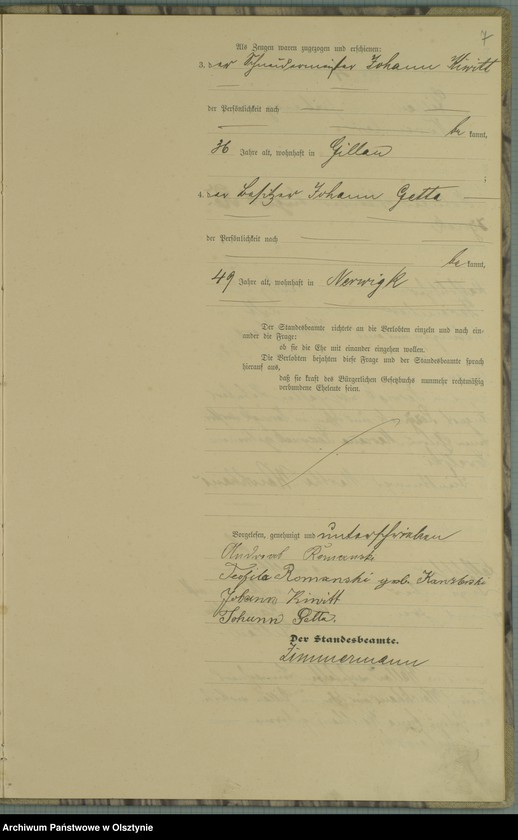 7
Als Zeugen waren zugezogen und erschienen:
3. der Schneidermeister Johann Kiwitt
der Persönlichkeit nach
be kannt,
36 Jahre alt, wohnhaft in Gillau
4. der Besitzer Johann Getta
der Persönlichkeit nach
be kannt,
49 Jahre alt, wohnhaft in Nerwigk
Der Standesbeamte richtete an die Verlobten einzeln und nach ein-
ander die Frage:
ob sie die Ehe mit einander eingehen wollen.
Die Verlobten bejahten diese Frage und der Standesbeamte sprach
hierauf aus,
daß sie kraft des Bürgerlichen Gesetzbuchs nunmehr rechtmäßig
verbundene Eheleute seien.
Vorgelesen, genehmigt und unterschrieben
Andreas Romanski
Teofila Romanski geb.
Johann Kiwitt
Johann Getta.
Der Standesbeamte.
Zimmermann
Archiwum Państwowe w Olsztynie